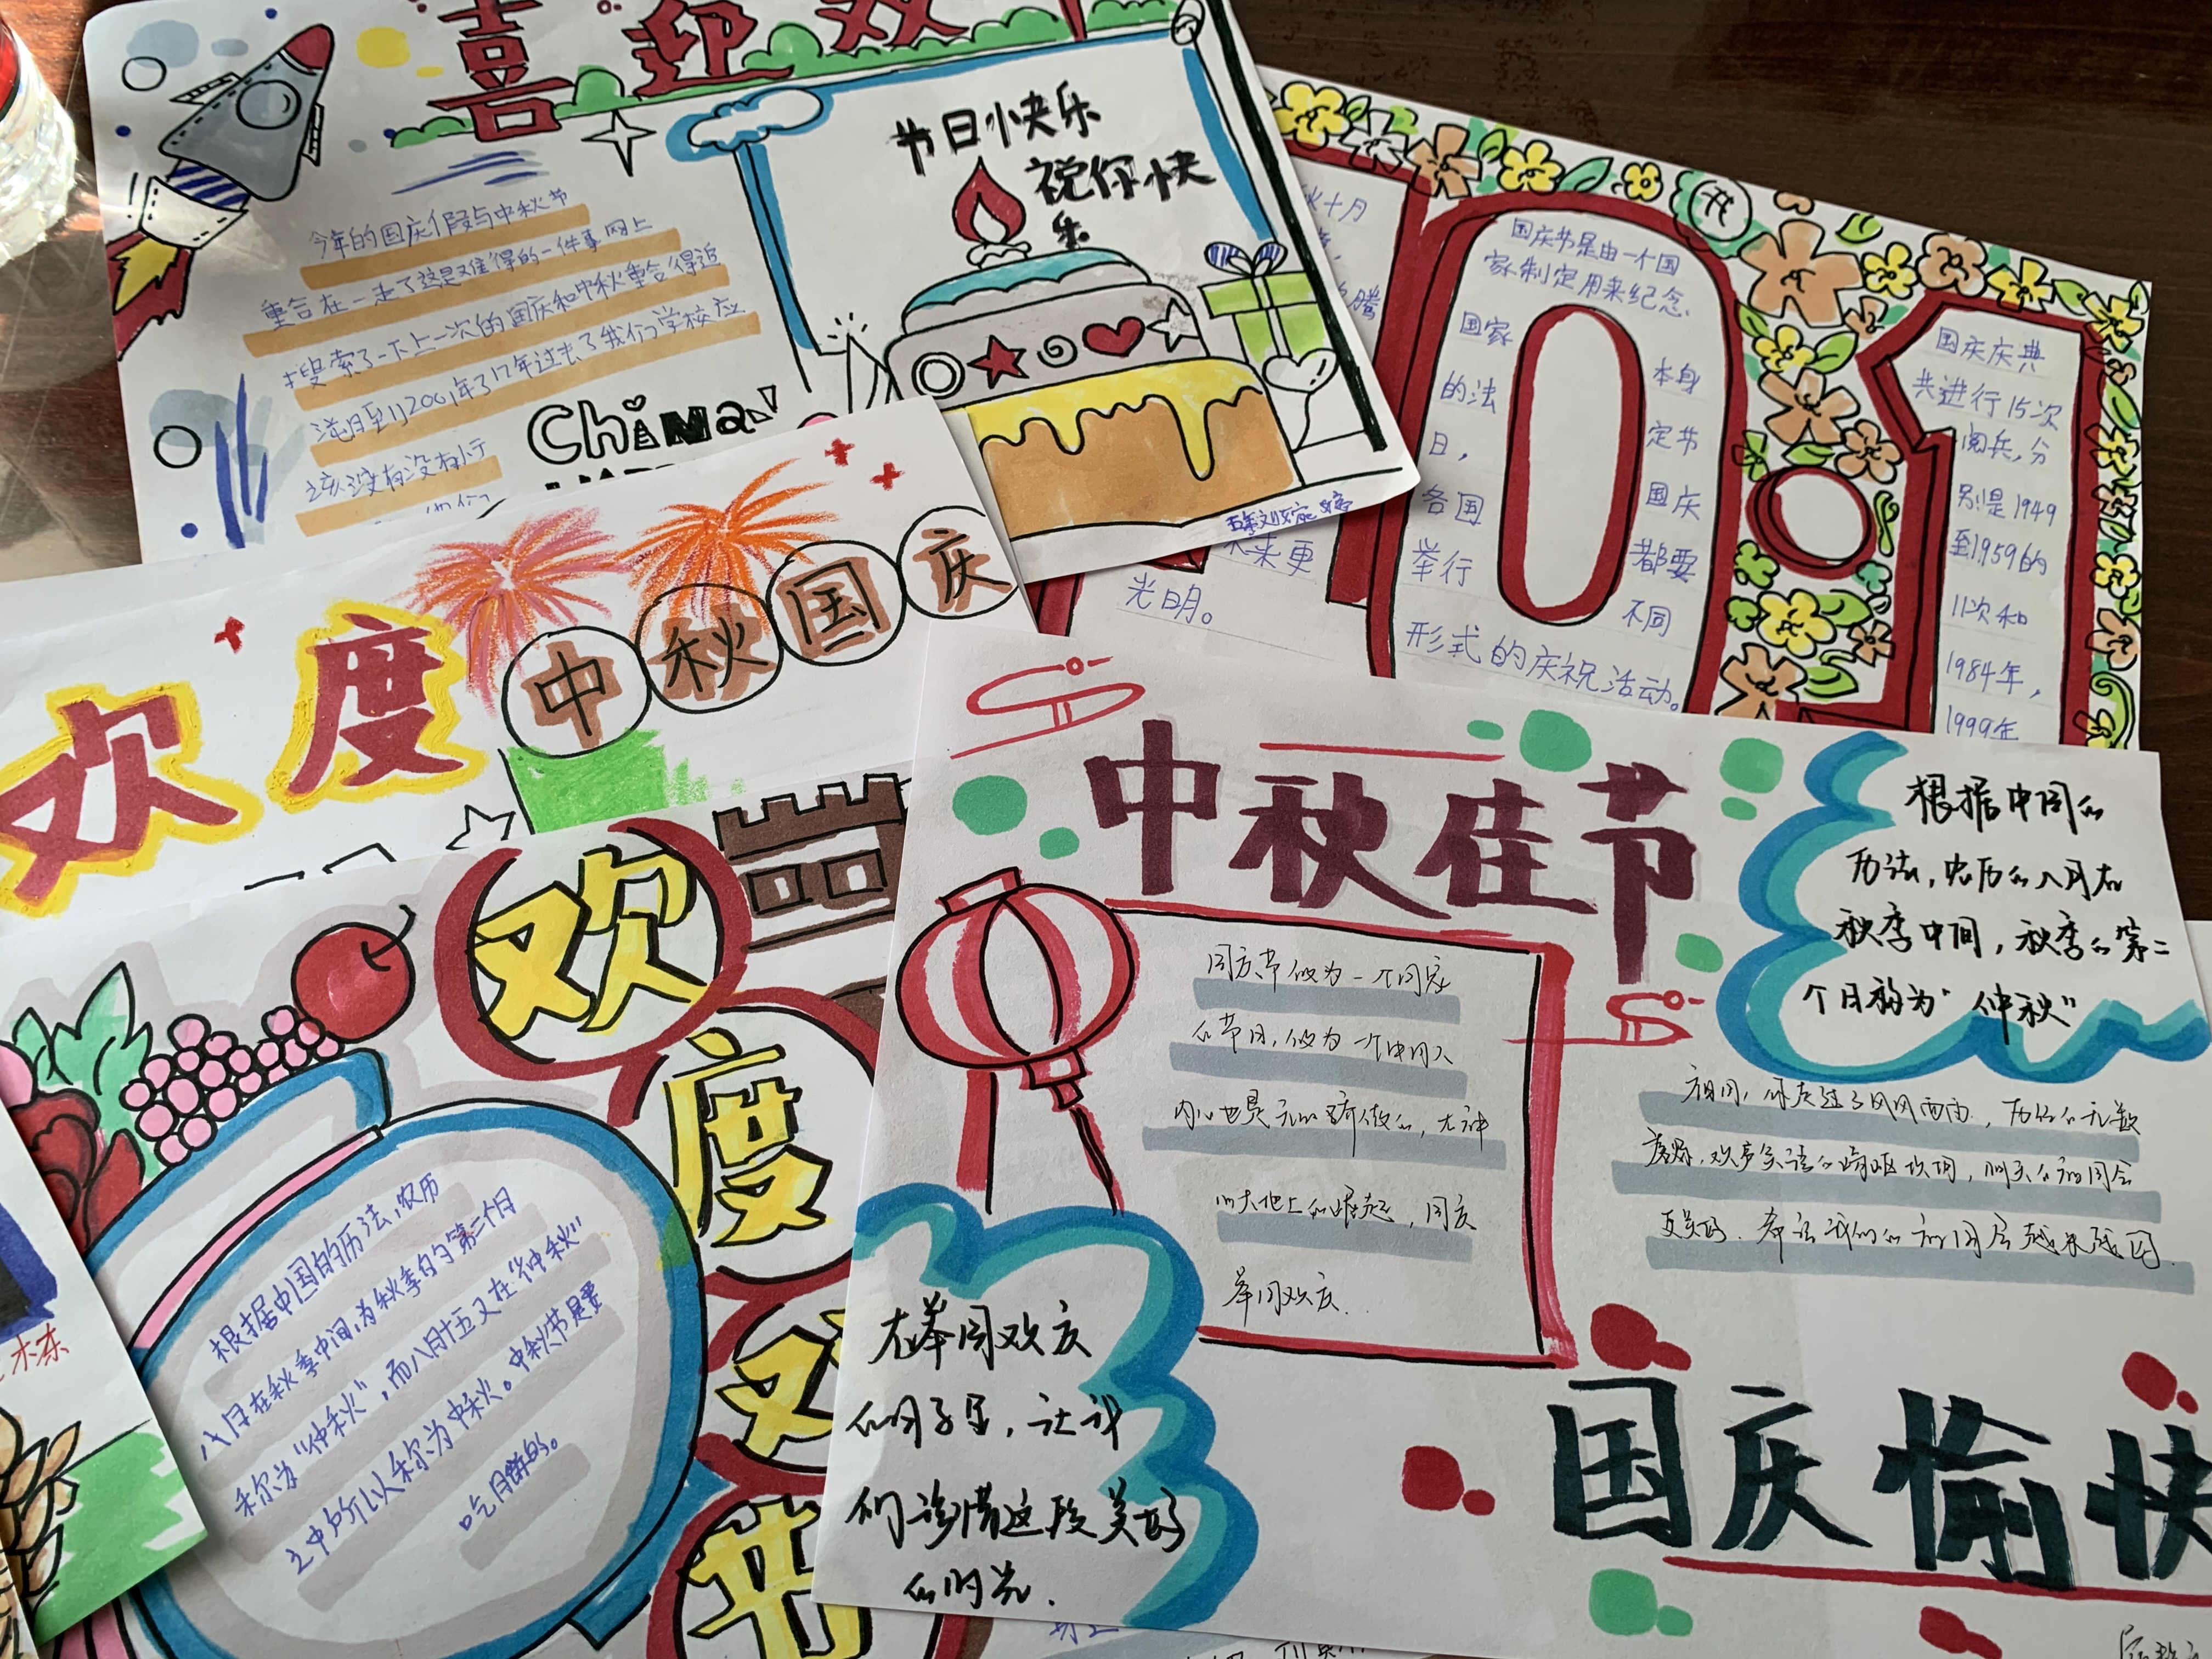 喜迎双
节日快乐
祝你快
乐
今年的国庆假与中秋节
重合在一起了这是难得的一件事网上
搜索了一下上一次的国庆和中秋重合得追
溯到2001年了17年过去了我们学校应
该没有没有小于
China
秋十月
腾
未来更
光明。
国庆节是由一个国
家制定用来纪念
国家 本身
的法 定节
日， 国庆
各国 都要
举行 不同
形式的庆祝活动。
国庆庆典
共进行15次
阅兵，分
别是1949
至1959的
11次和
1984年，
1999年
欢度
中秋国庆
欢
度
双
节
根据中国的历法，农历
八月在秋季中间，为秋季的第二个月
称为“仲秋”，而八月十五又在“仲秋”
之中所以称为中秋。中秋节是要
吃月饼的。
中秋佳节
根据中国的
历法，农历的八月在
秋季中间，秋季的第二
个月称为“仲秋”
国庆节做为一个国家
的节日，做为一个中国人
内心也是无比骄傲的，大神
州大地上的崛起，国庆
举国欢庆..
祖国，你走过了风风雨雨，历经的无数
更美好.
在举国欢庆
的日子里，让我
们珍惜这段美好
的时光.
国庆愉快